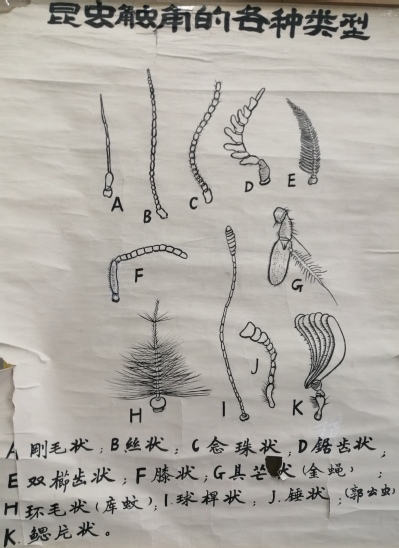 昆虫触角的各种类型
A
B
C
D
E
F
G
H
I
J
K
A 刚毛状；B 丝状；C 念珠状；D 锯齿状；
E 双栉齿状；F 膝状；G 具芒状（金蝇）；
H 环毛状（库蚊）；I.球桿状；J.锤状；（郭公虫）
K 鳃片状。